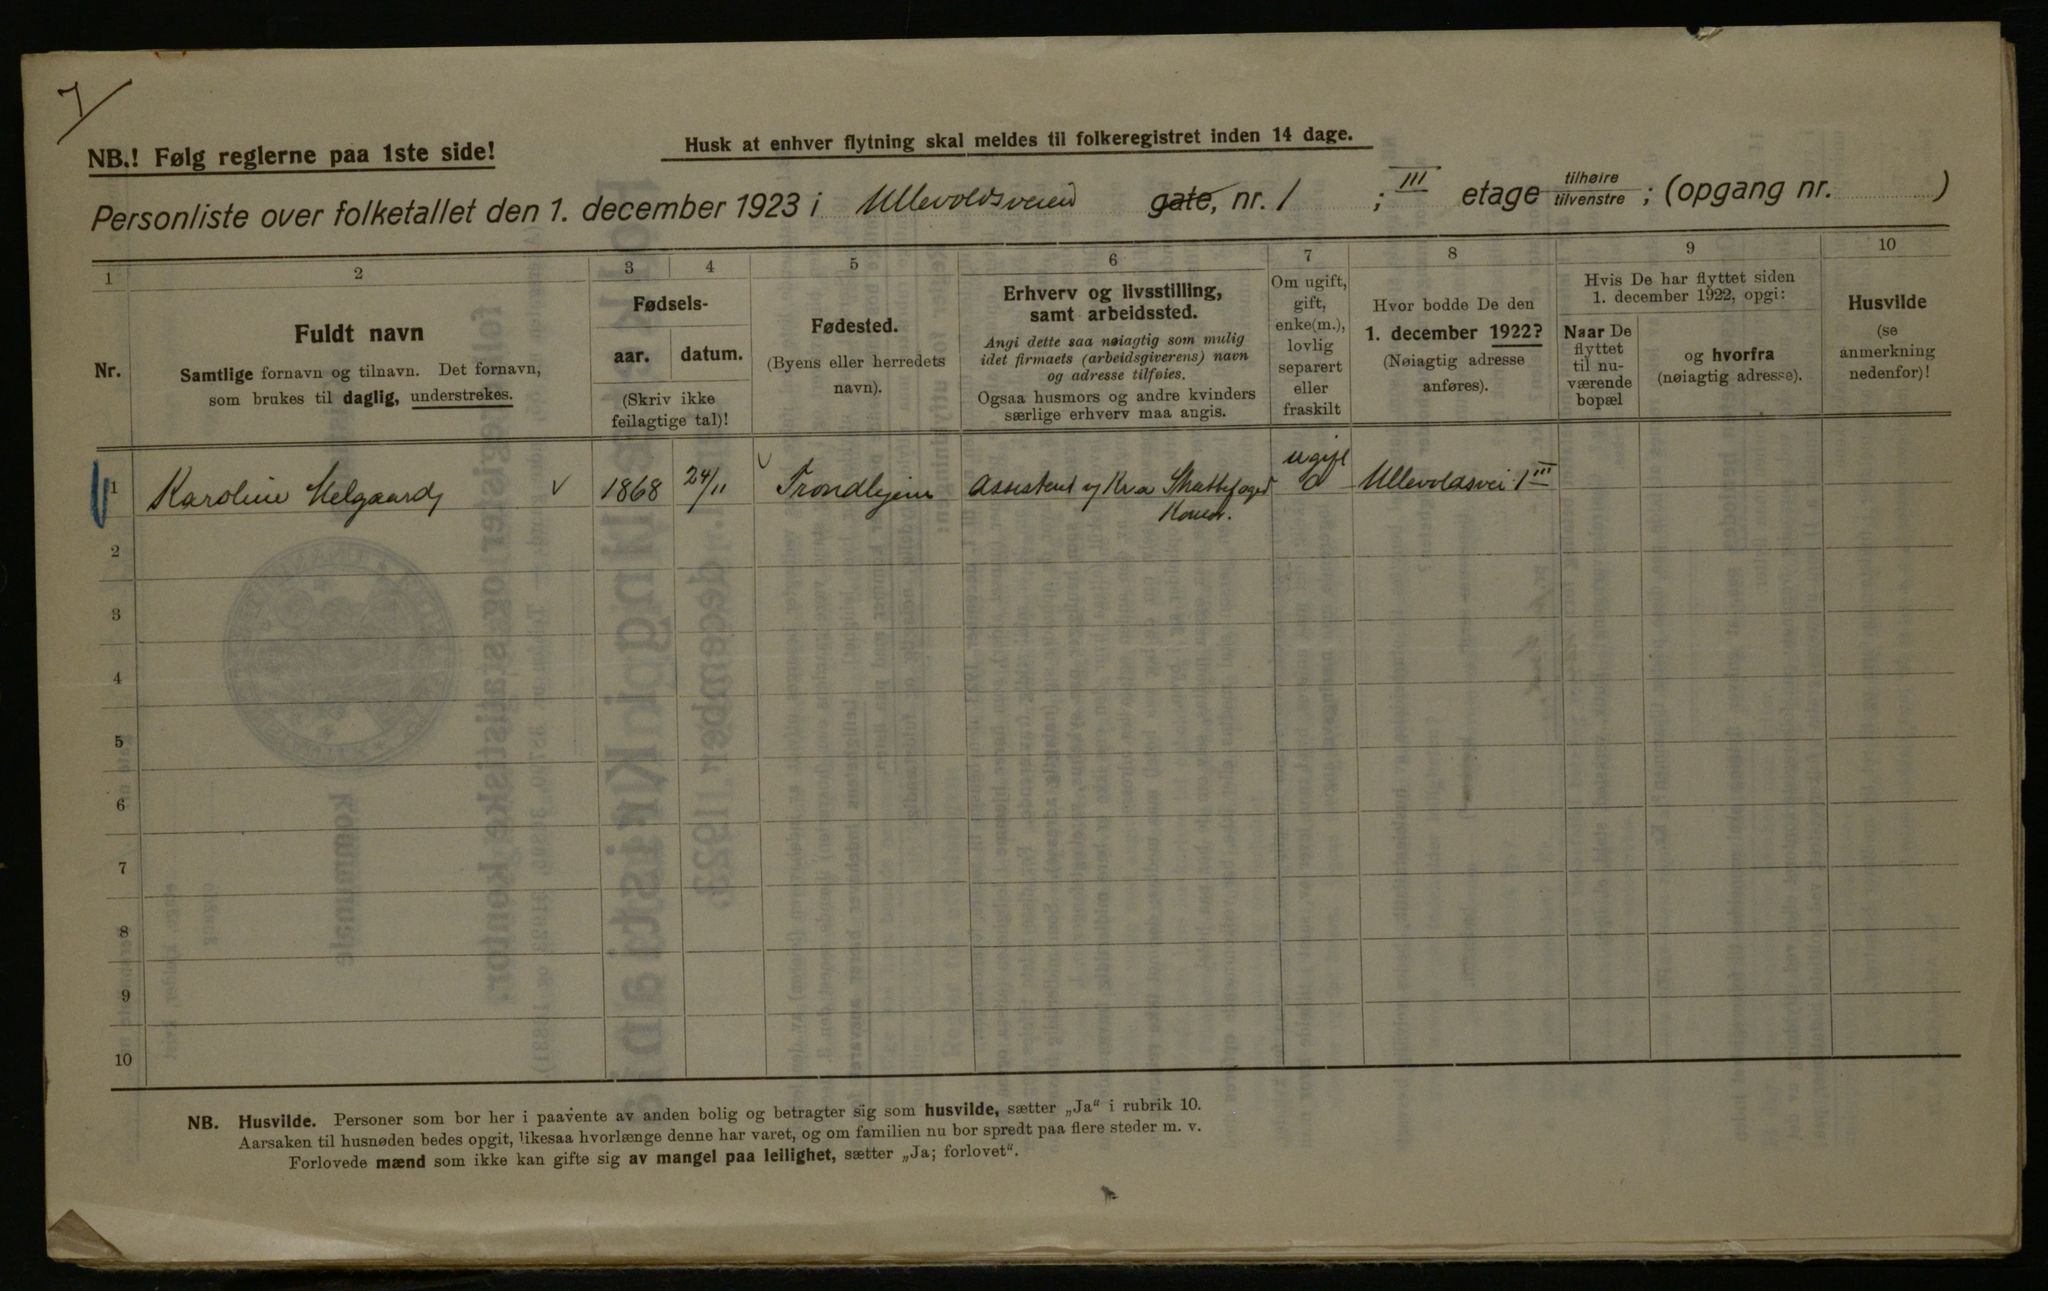 7
NB.! Følg reglerne paa 1ste side!
Husk at enhver flytning skal meldes til folkeregistret inden 14 dage.
Personliste over folketallet den 1. december 1923 i Ullevoldsveien gate, nr. 1 ; III etage tilhøire tilvenstre ; (opgang nr. )
1 2 3 4 5 6 7 8 9 10
Nr.
Fuldt navn
Samtlige fornavn og tilnavn. Det fornavn,
som brukes til daglig, understrekes.
Fødsels-
aar. datum.
(Skriv ikke
feilagtige tal)!
Fødested.
(Byens eller herredets
navn).
Erhverv og livsstilling,
samt arbeidssted.
Angi dette saa nøiagtig som mulig
idet firmaets (arbeidsgiverens) navn
og adresse tilføies.
Ogsaa husmors og andre kvinders
særlige erhverv maa angis.
Om ugift,
gift,
enke(m.),
lovlig
separert
eller
fraskilt
Hvor bodde De den
1. december 1922?
(Nøiagtig adresse
anføres).
Hvis De har flyttet siden
1. december 1922, opgi:
Naar De
flyttet
til nu-
værende
bopæl
og hvorfra
(nøiagtig adresse).
Husvilde
(se
anmerkning
nedenfor)!
1 Karoline Helgaard 1868 24/11 Trondhjem Assistent Kra Skattefoged ugift Ullevoldsvei 1 III
Kontor.
2
3
4
5
6
7
8
9
10
NB. Husvilde. Personer som bor her i paavente av anden bolig og betragter sig som husvilde, sætter „Ja“ i rubrik 10.
Aarsaken til husnøden bedes opgit, likesaa hvorlænge denne har varet, og om familien nu bor spredt paa flere steder m. v.
Forlovede mænd som ikke kan gifte sig av mangel paa leilighet, sætter „Ja; forlovet“.